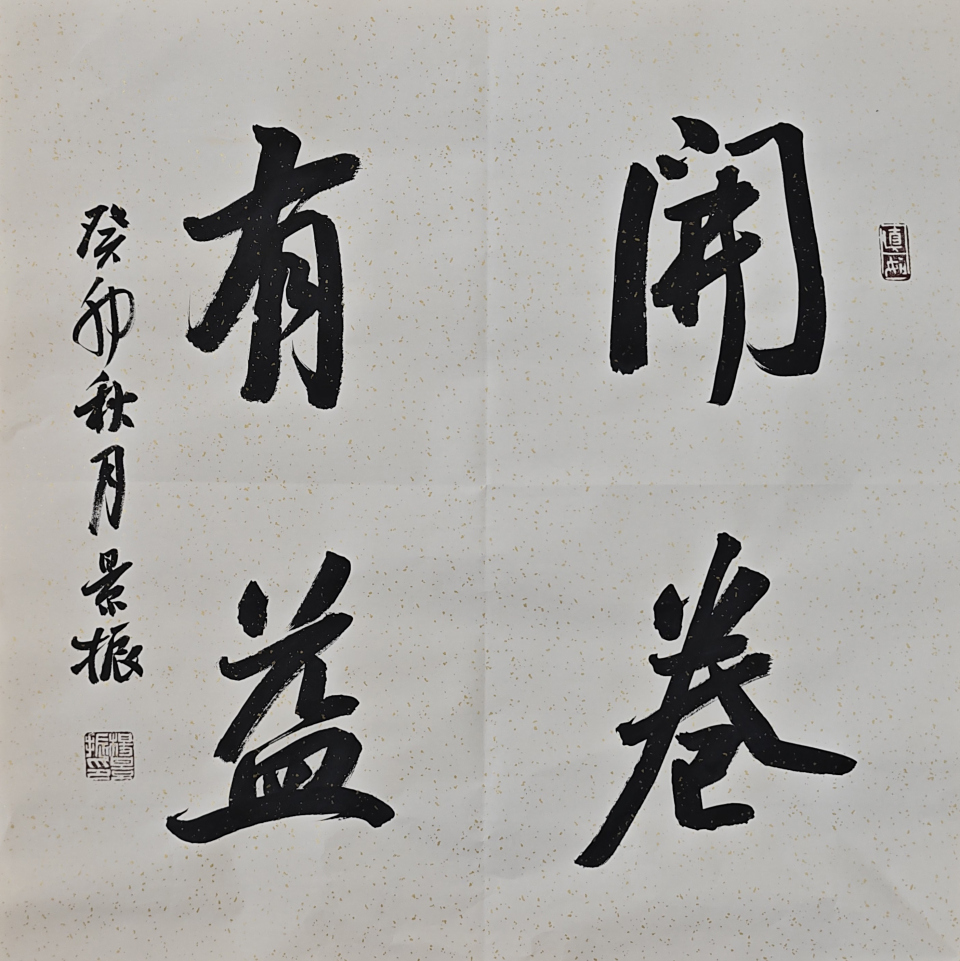 開卷
有益
癸卯秋月景振
真如